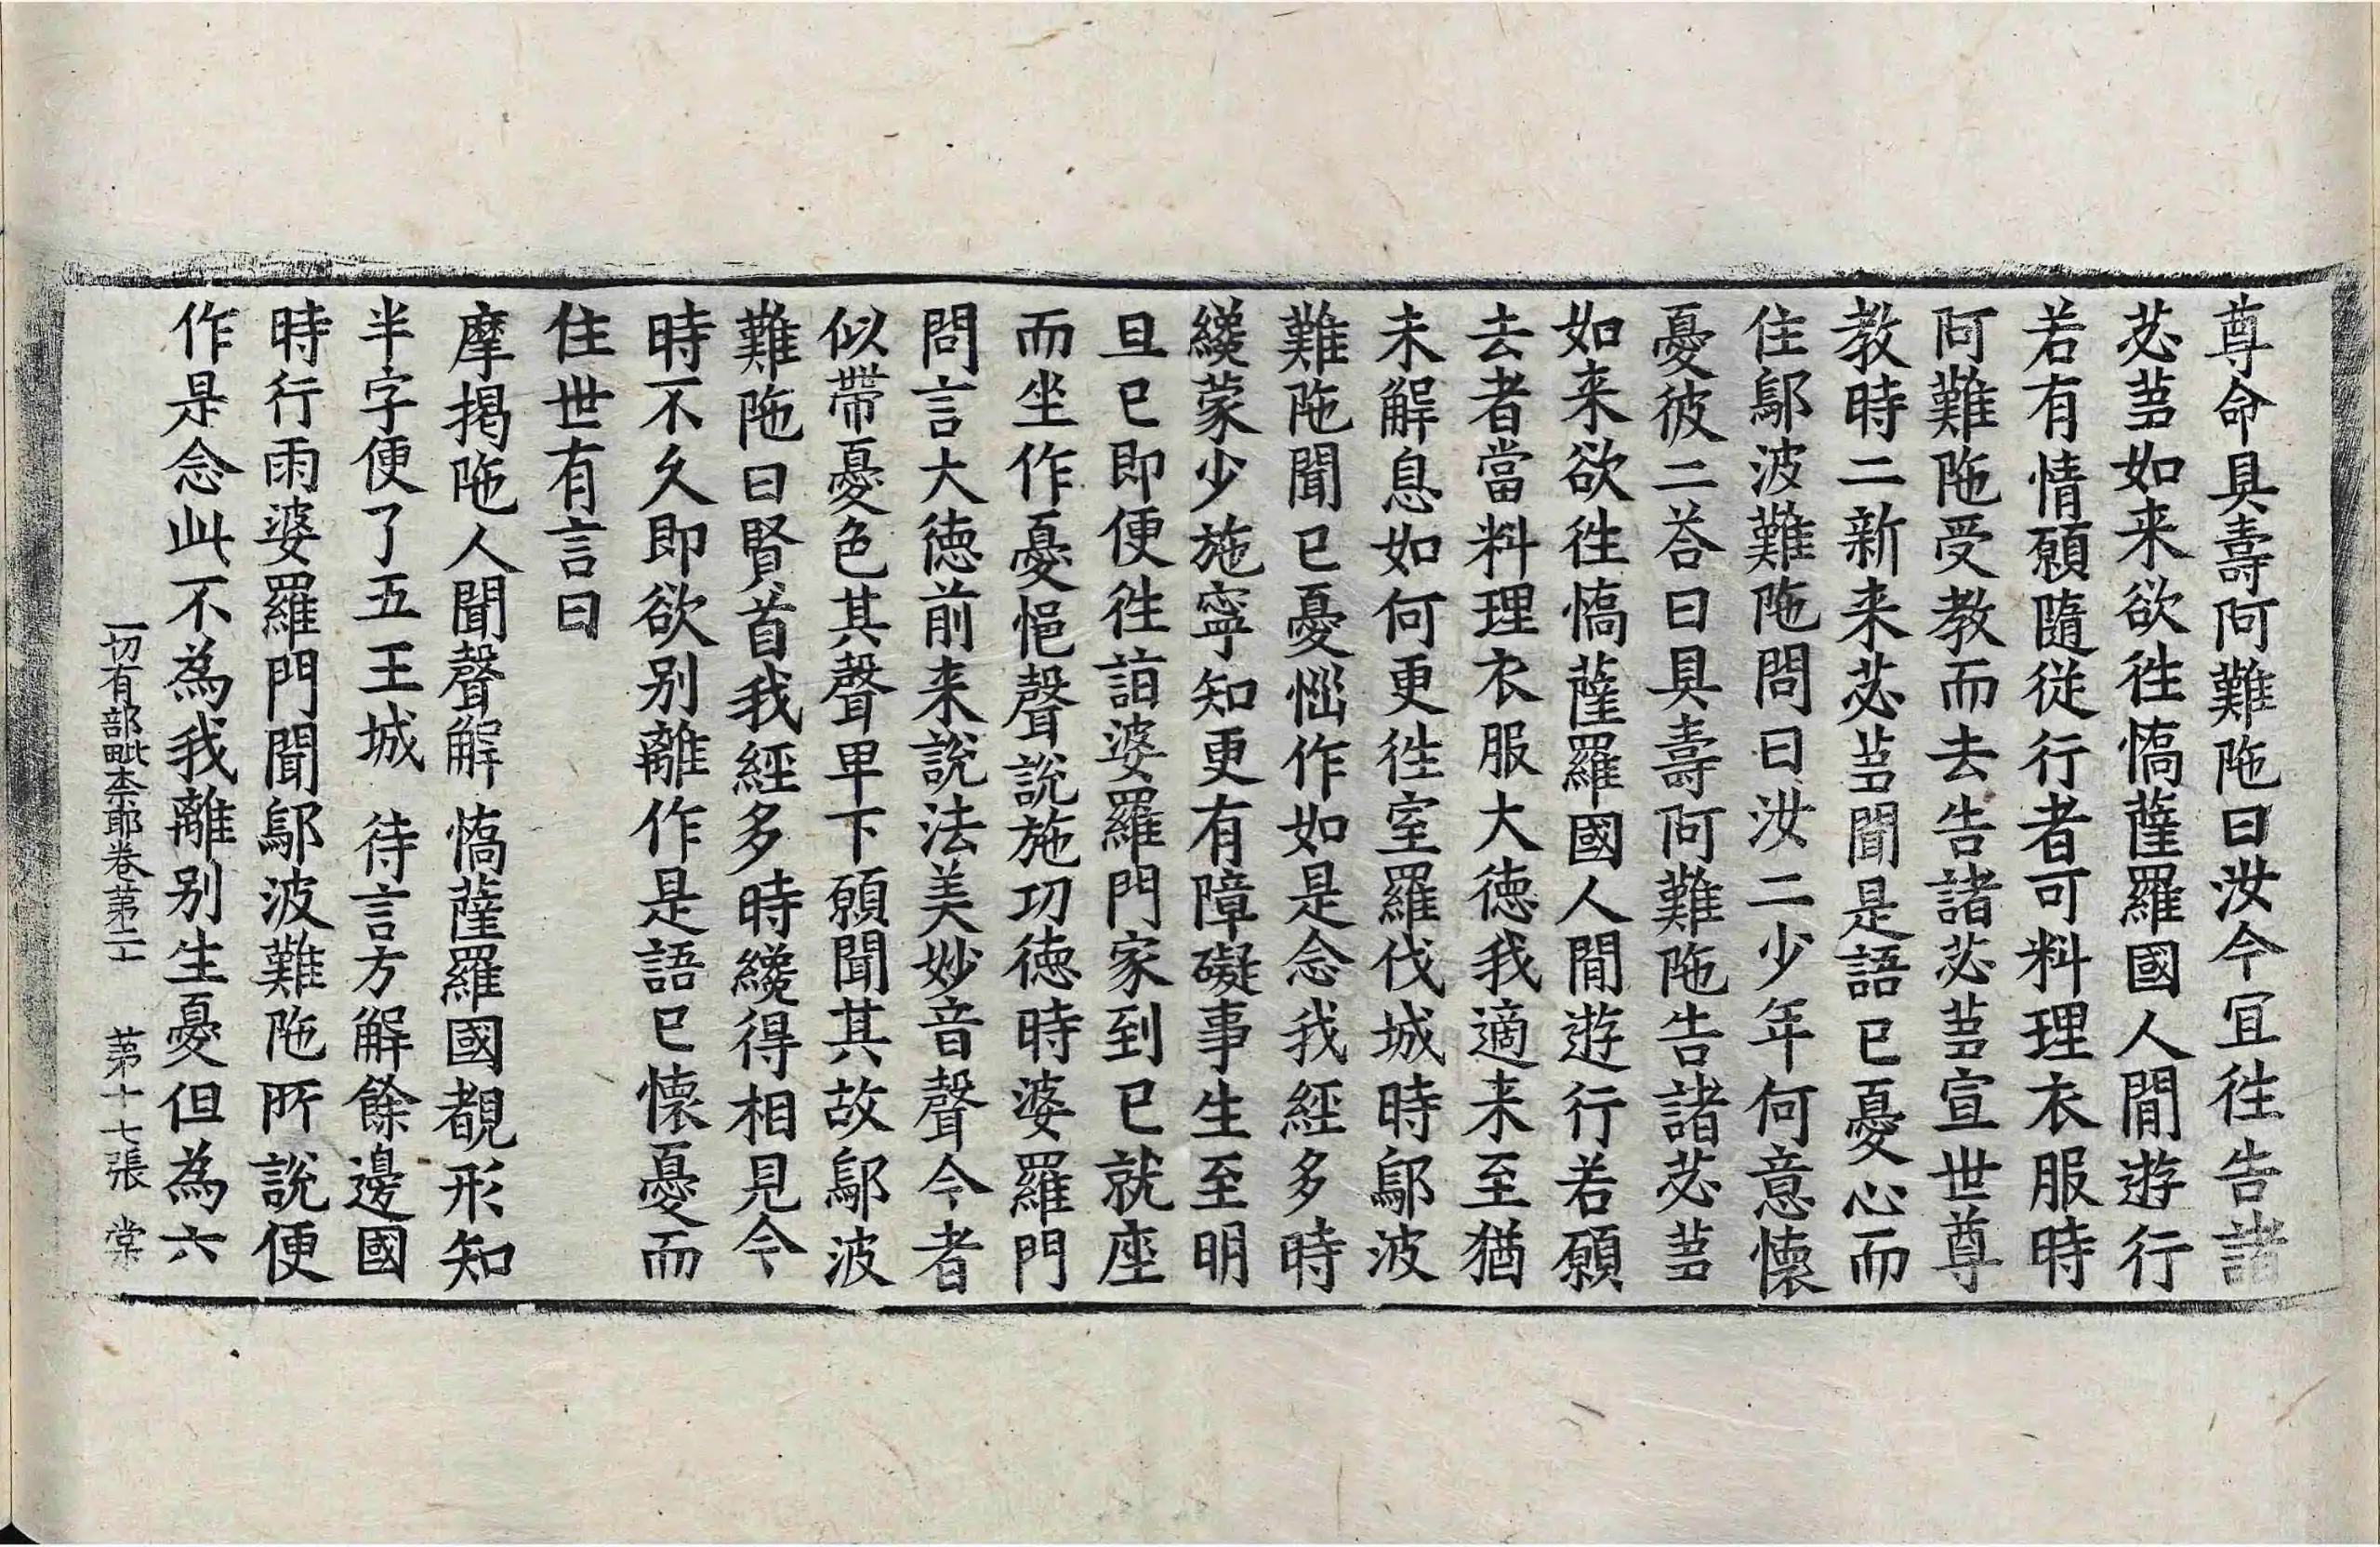 尊命具壽阿難陁曰汝今冝徃告諸
苾蒭如来欲徃憍薩羅國人間遊行
若有情願隨從行者可料理衣服時
阿難陁受教而去告諸苾蒭宣世尊
教時二新来苾蒭聞是語已憂心而
住鄔波難陁問曰汝二少年何意懷
憂彼二荅曰具壽阿難陁告諸苾蒭
如来欲徃憍薩羅國人間遊行若願
去者當料理衣服大德我適来至猶
未解息如何更徃室羅伐城時鄔波
難陁聞已憂惱作如是念我經多時
纔蒙少施寧知更有障礙事生至明
旦已即便徃詣婆羅門家到已就座
而坐作憂悒聲說施功德時婆羅門
問言大德前来說法美妙音聲今者
似帶憂色其聲卑下願聞其故鄔波
難陁曰賢首我經多時纔得相見今
時不久即欲别離作是語已懷憂而
住世有言曰
摩揭陁人聞聲解 憍薩羅國覩形知
半字便了五王城 待言方解餘邊國
時行雨婆羅門聞鄔波難陁所說便
作是念此不為我離别生憂但為六
一切有部毗奈耶卷苐二十 苐十七張 棠